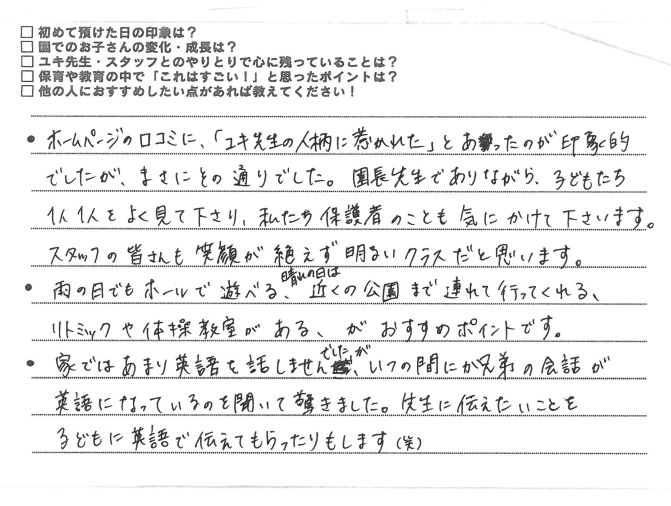 □ 初めて預けた日の印象は？
□ 園でのお子さんの変化・成長は？
□ ユキ先生・スタッフとのやりとりで心に残っていることは？
□ 保育や教育の中で「これはすごい！」と思ったポイントは？
□ 他の人におすすめしたい点があれば教えてください！
• ホームページの口コミに、「ユキ先生の人柄に惹かれた」とあったのが印象的
でしたが、まさにその通りでした。園長先生でありながら、子どもたち
1人1人をよく見て下さり、私たち保護者のことも気にかけて下さいます。
スタッフの皆さんも笑顔が絶えず明るいクラスだと思います。
• 雨の日でもホールで遊べる、晴れの日は近くの公園まで連れて行ってくれる、
リトミックや体操教室がある、がおすすめポイントです。
• 家ではあまり英語を話しませんでしたが、いつの間にか兄弟の会話が
英語になっているのを聞いて驚きました。先生に伝えたいことを
子どもに英語で伝えてもらったりもします(笑)